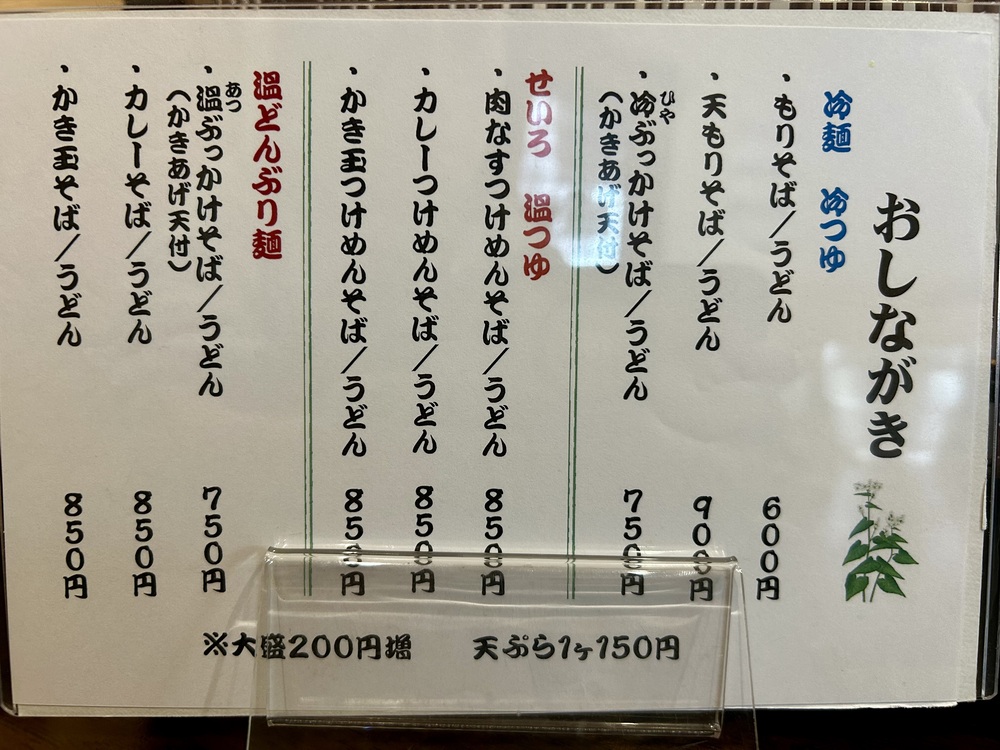 おしながき
冷麺　冷つゆ
・もりそば／うどん　600円
・天もりそば／うどん　900円
・冷ぶっかけそば／うどん　750円
ひや
（かきあげ天付）
せいろ　温つゆ
・肉なすつけめんそば／うどん　850円
・カレーつけめんそば／うどん　850円
・かき玉つけめんそば／うどん　850円
温どんぶり麺
・温ぶっかけそば／うどん　750円
あつ
（かきあげ天付）
・カレーそば／うどん　850円
・かき玉そば／うどん　850円
※大盛200円増　天ぷら1ヶ150円